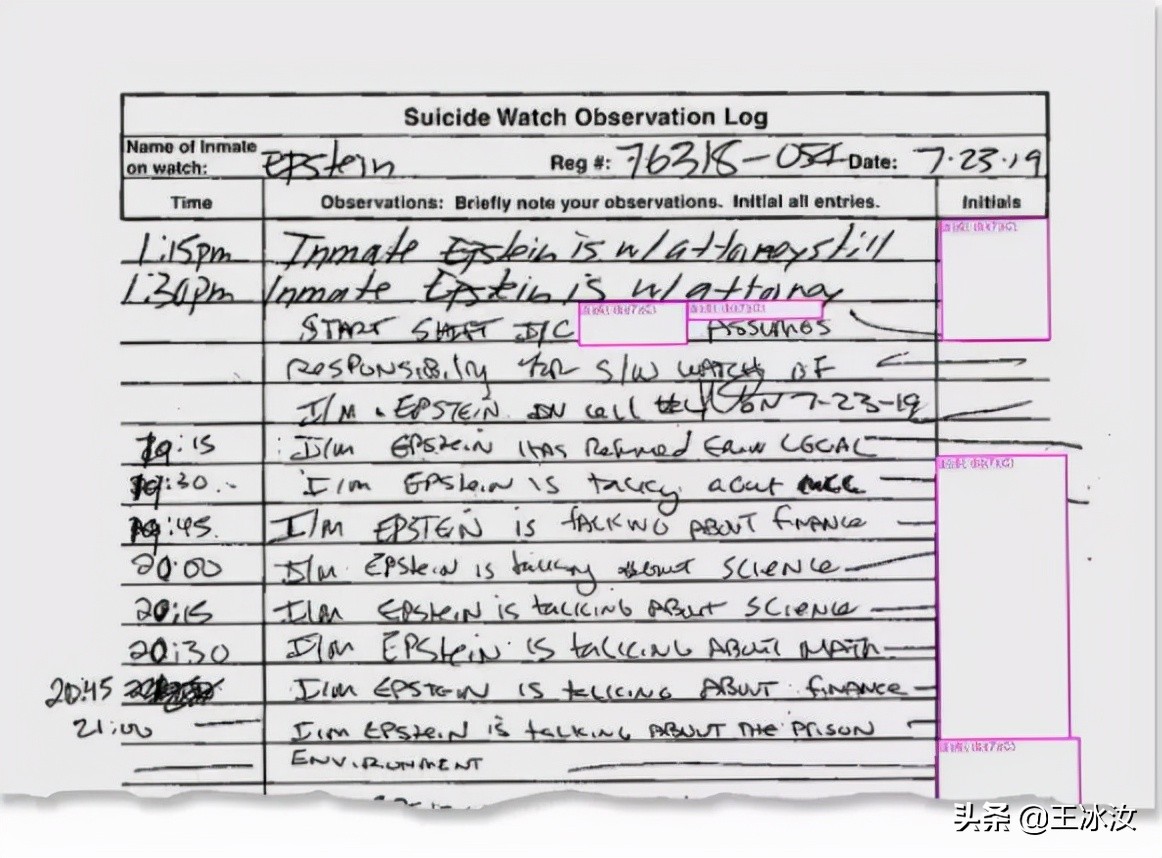 Suicide Watch Observation Log
Name of Inmate on watch: Epstein Reg #: 76318-054 Date: 7-23-19
Time Observations: Briefly note your observations. Initial all entries. Initials
1:15pm Inmate Epstein is w/attorney still
1:30pm Inmate Epstein is w/attorney
START SHIFT I/C ASSUMES
RESPONSIBILITY FOR S/W WATCH OF
I/M EPSTEIN IN cell ON 7-23-19
19:15 I/M EPSTEIN HAS Returned From LEGAL
19:30 I/M EPSTEIN IS talking about
19:45 I/M EPSTEIN IS TALKING ABOUT FINANCE
20:00 I/M EPSTEIN IS talking about SCIENCE
20:15 I/M EPSTEIN IS TALKING ABOUT SCIENCE
20:30 I/M EPSTEIN IS TALKING ABOUT MATH
20:45 I/M EPSTEIN IS TALKING ABOUT FINANCE
21:00 I/M EPSTEIN IS TALKING ABOUT THE PRISON
ENVIRONMENT
头条 @王冰汝